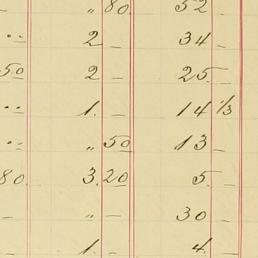 „ 80 52 –
·· 2 – 34 –
50 2 – 25 –
·· 1. – 14 1/3
·· „ 50 13 –
80. 3.20 5. –
– „ – 30 –
1. – 4. –